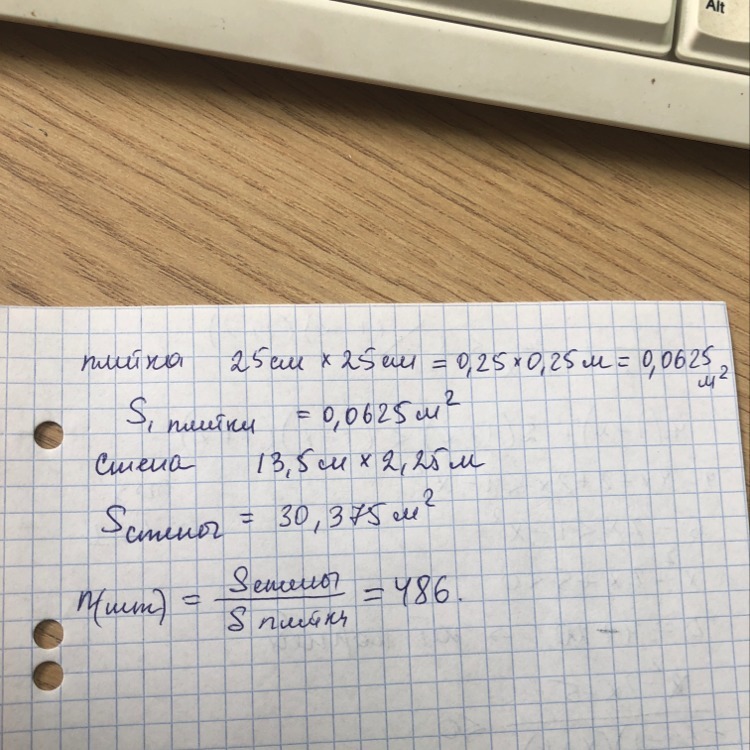 Alt
плитка 25см × 25см = 0,25 × 0,25 м = 0,0625 м²
S₁ плитки = 0,0625 м²
Стена 13,5м × 2,25м
Sстены = 30,375 м²
n(шт) = Sстены / S плитки = 486.